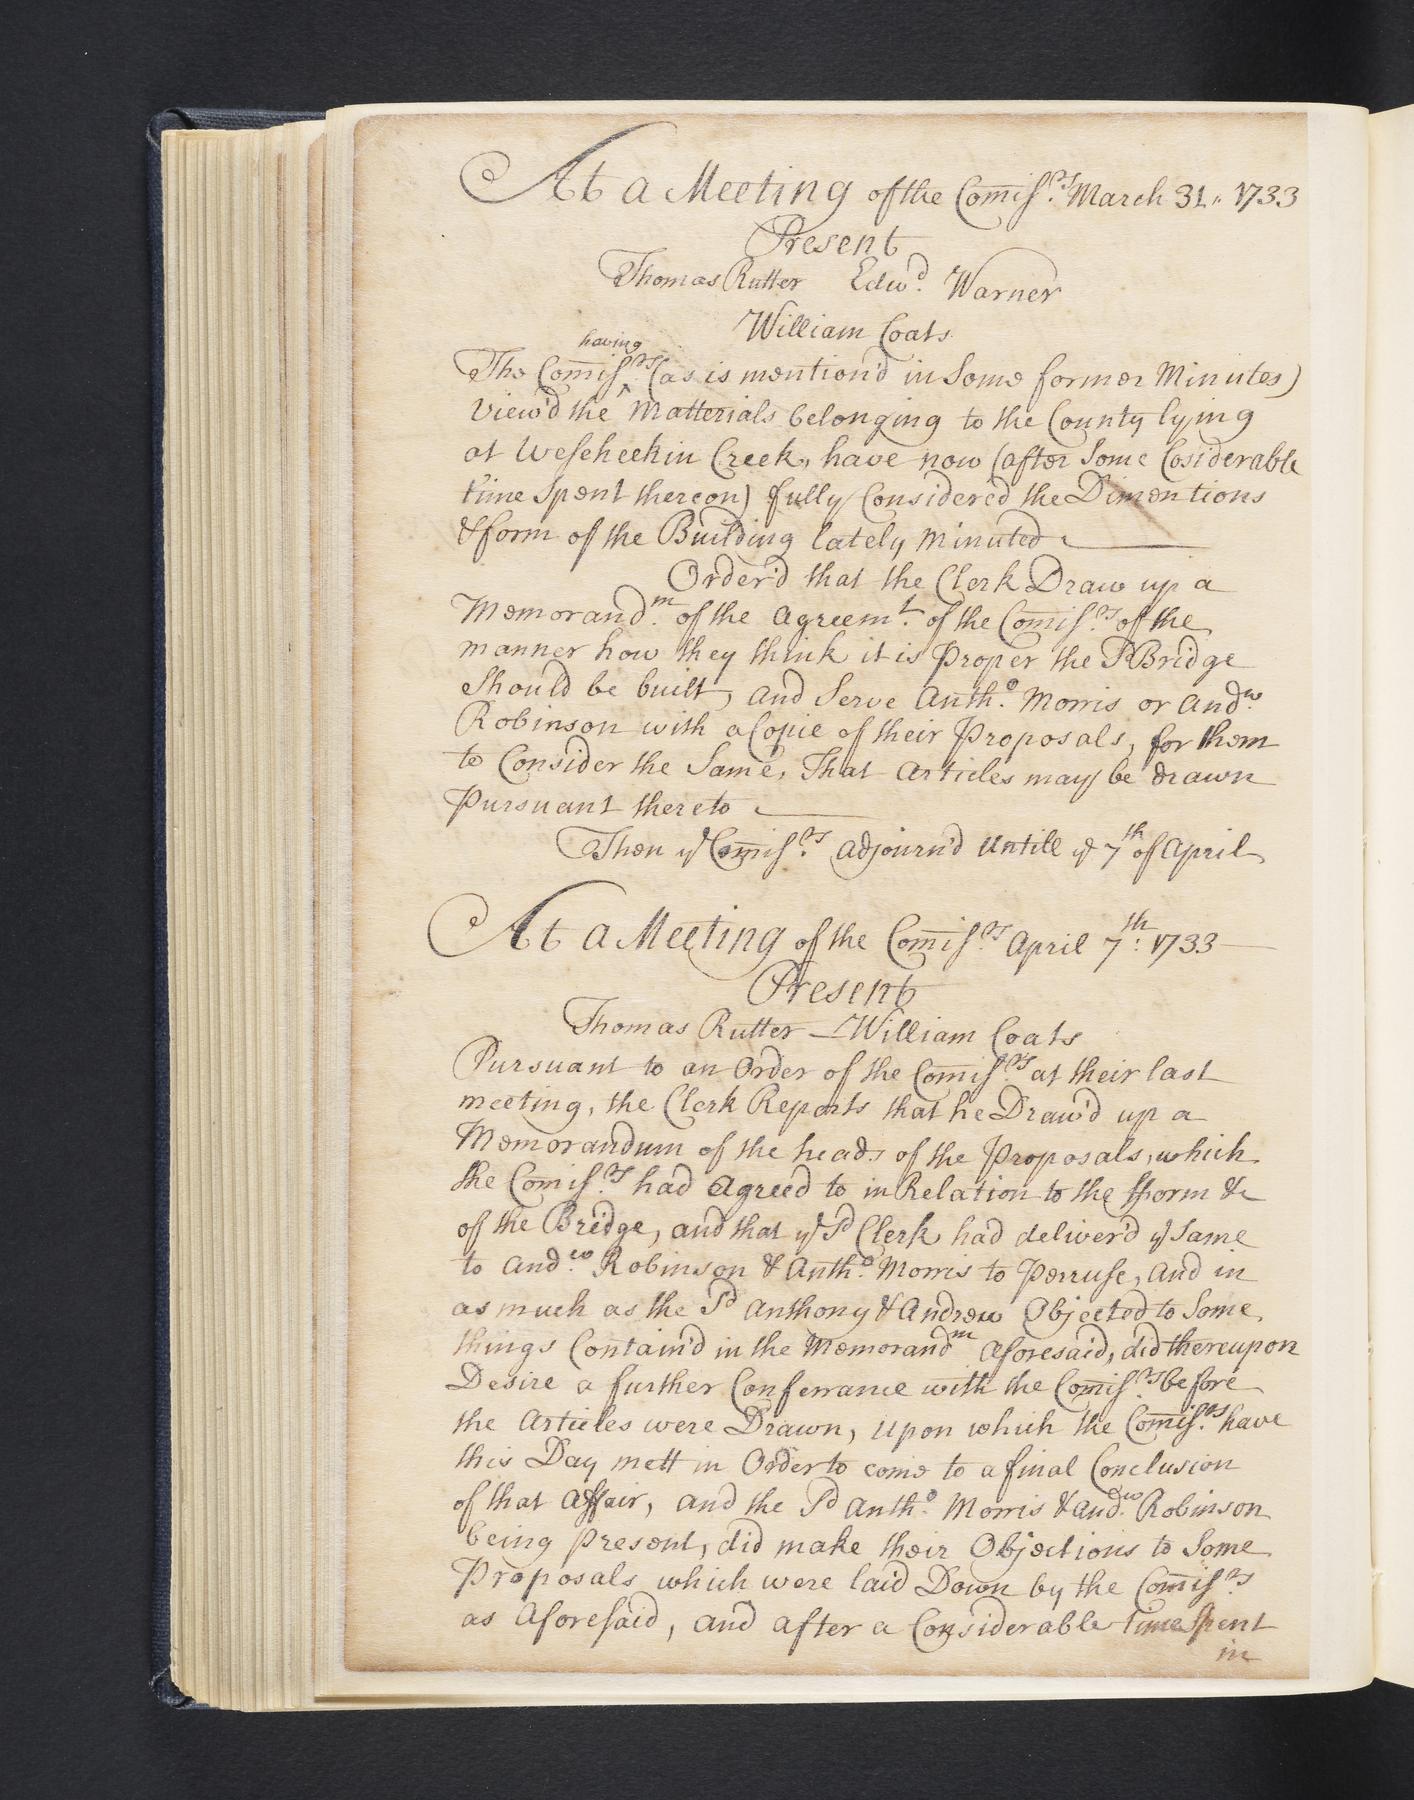 At a Meeting of the Comiss.rs March 31. 1733
Present
Thomas Rutter Edw.d Warner
William Coats
having
The Comiss.rs ‸ (as is mention'd in Some former Minutes)
View'd the Matterials belonging to the County lying
at Wesseheekin Creek, have now (after Some Cosiderable
time Spent thereon) fully Considered the Dimentions
& form of the Building lately Minuted
Order'd that the Clerk Draw up a
Memorand.m of the Agreem.t of the Comiss.rs of the
manner how they think it is Proper the Sd Bridge
Should be built, and Serve Anth.o Morris or And.w
Robinson with a Copie of their Proposals, for them
to Consider the Same, That Articles may be drawn
Pursuant thereto
Then ye Comiss.rs adjourn'd Untill ye 7th of April
At a Meeting of the Comiss.rs April 7th: 1733
Present
Thomas Rutter — William Coats
Pursuant to an Order of the Comiss.rs at their last
meeting, the Clerk Reports that he Draw'd up a
Memorandum of the heads of the Proposals, which
the Comiss.rs had Agreed to in Relation to the fform &c
of the Bridge, and that ye Sd Clerk had deliver'd ye Same
to And.w Robinson & Anth.o Morris to Perruse, and in
as much as the Sd Anthony & Andrew Objected to Some
things Contain'd in the Memorandm aforesaid, did thereupon
Desire a further Conferrance with the Comiss.rs before
the Articles were Drawn, Upon which the Comiss.rs have
this Day mett in Order to come to a final Conclusion
of that Affair, and the Sd Anth.o Morris & And.w Robinson
being Present, did make their Objections to Some
Proposals which were laid Down by the Comiss.rs
as Aforesaid, and after a Considerable time Spent
in